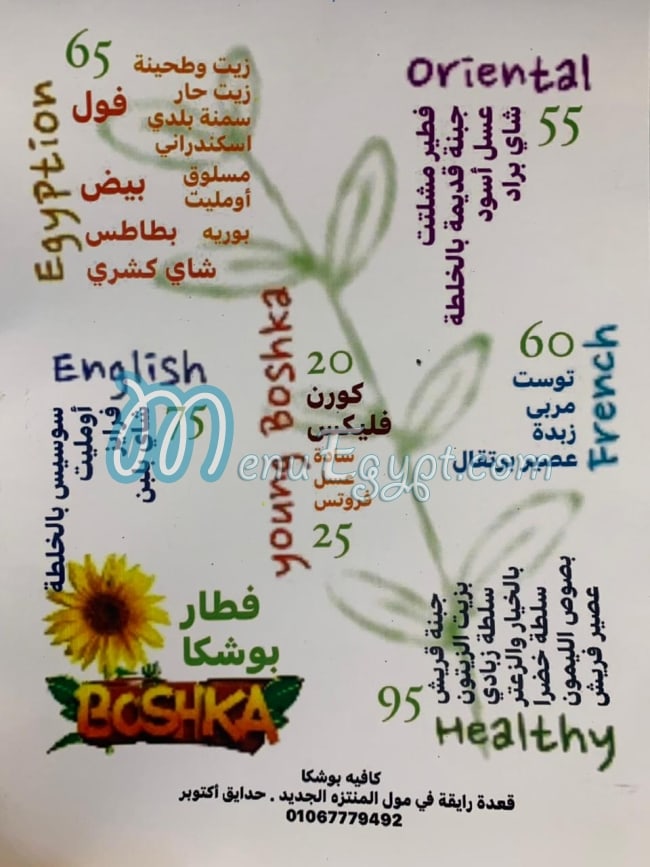 Egyption
65
زيت وطحينة
زيت حار
فول
سمنة بلدي
اسكندراني
مسلوق
بيض
أومليت
بطاطس بوريه
شاي كشري
Oriental
55
فطير مشلتت
جبنة قديمة بالخلطة
عسل أسود
شاي براد
English
75
سوسيس بالخلطة
أومليت
فرايز
شاي بلبن
young Boshka
20
كورن
فليكس
سادة
عسل
فروتس
25
French
60
توست
مربى
زبدة
عصير بوتقال
MenuEgypt.com
Healthy
95
جبنة قريش
بزيت الزيتون
سلطة زبادي
بالخيار والزعتر
سلطة خضرا
بصوص الليمون
عصير فريش
فطار
بوشكا
BOSHKA
كافيه بوشكا
قعدة رايقة في مول المنتزه الجديد . حدايق أكتوبر
01067779492